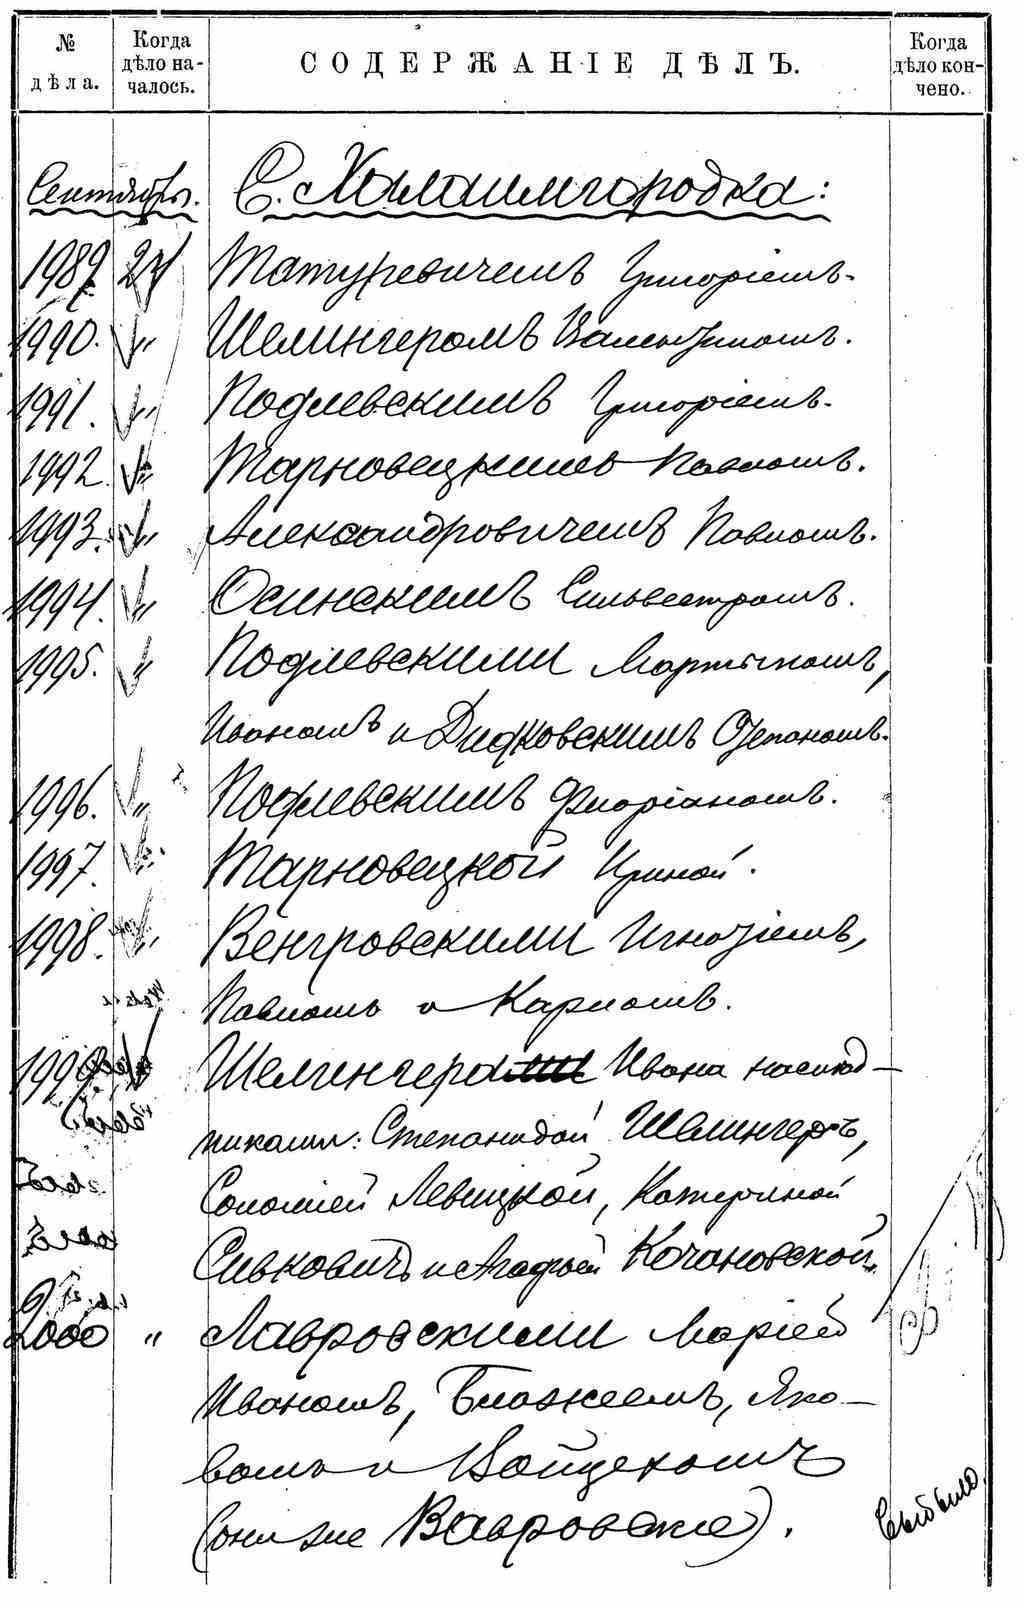 № дѣла.
Когда дѣло началось.
СОДЕРЖАНІЕ ДѢЛЪ.
Когда дѣло кончено.
Сентябрь. С. Халаимгородка:
1989 24 Матуревичемъ Григоріемъ.
1990. " Шелингеромъ Валентиномъ.
1991. " Подлевскимъ Григоріемъ.
1992 " Тарновецкимъ Павломъ.
1993. " Александровичемъ Павломъ.
1994. " Осинскимъ Сильвестромъ.
1995. " Подлевскими Мартыномъ,
Иваномъ и Дидковскимъ Степаномъ.
1996. " Подлевскимъ Флоріаномъ.
1997. " Тарновецкой Ириной.
1998. " Венгровскими Игнатіемъ,
Павломъ и Карломъ.
1999 Шелингера Ивана наслѣд-
никами: Степанидой Шелингеръ,
Соломіей Левицкой, Катериной
Сивковичъ и Агафьей Кочановской.
2000 " Лавровскими Маріей
Иваномъ, Блажеемъ, Яко-
вомъ и Войцехомъ
(они же Вавровские).